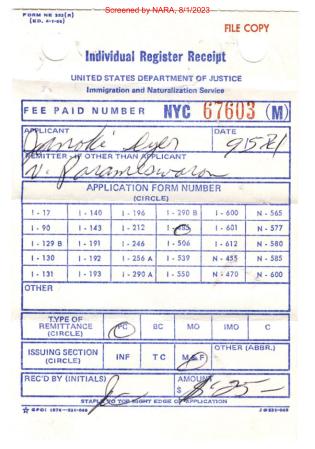 Screened by NARA, 8/1/2023
FORM NE 252(R)
(ED. 4-1-66)
FILE COPY
Individual Register Receipt
UNITED STATES DEPARTMENT OF JUSTICE
Immigration and Naturalization Service
FEE PAID NUMBER NYC 67603 (M)
APPLICANT DATE
Janoki Iyer
REMITTER, IF OTHER THAN APPLICANT
V. Parameswaron
APPLICATION FORM NUMBER
(CIRCLE)
I - 17 I - 140 I - 196 I - 290 B I - 600 N - 565
I - 90 I - 143 I - 212 I - 485 I - 601 N - 577
I - 129 B I - 191 I - 246 I - 506 I - 612 N - 580
I - 130 I - 192 I - 256 A I - 539 N - 455 N - 585
I - 131 I - 193 I - 290 A I - 550 N - 470 N - 600
OTHER
TYPE OF REMITTANCE (CIRCLE) PC BC MO IMO C
ISSUING SECTION (CIRCLE) INF TC M&F OTHER (ABBR.)
REC'D BY (INITIALS) AMOUNT
$ 25 -
STAPLE TO TOP RIGHT EDGE OF APPLICATION